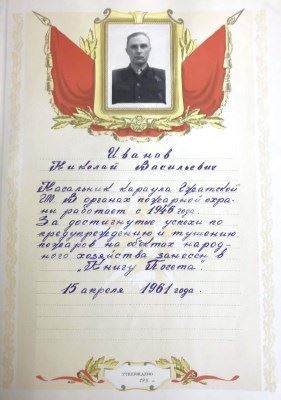 Иванов
Николай Васильевич
Начальник караула
В органах пожарной охра-
ны работает с 1946 года.
За достигнутые успехи по
предупреждению и тушению
пожаров на обектах народ-
ного хозяйства занесен в
"Книгу Почета".
15 апреля 1961 года.
УТВЕРЖДЕНО
195 г.